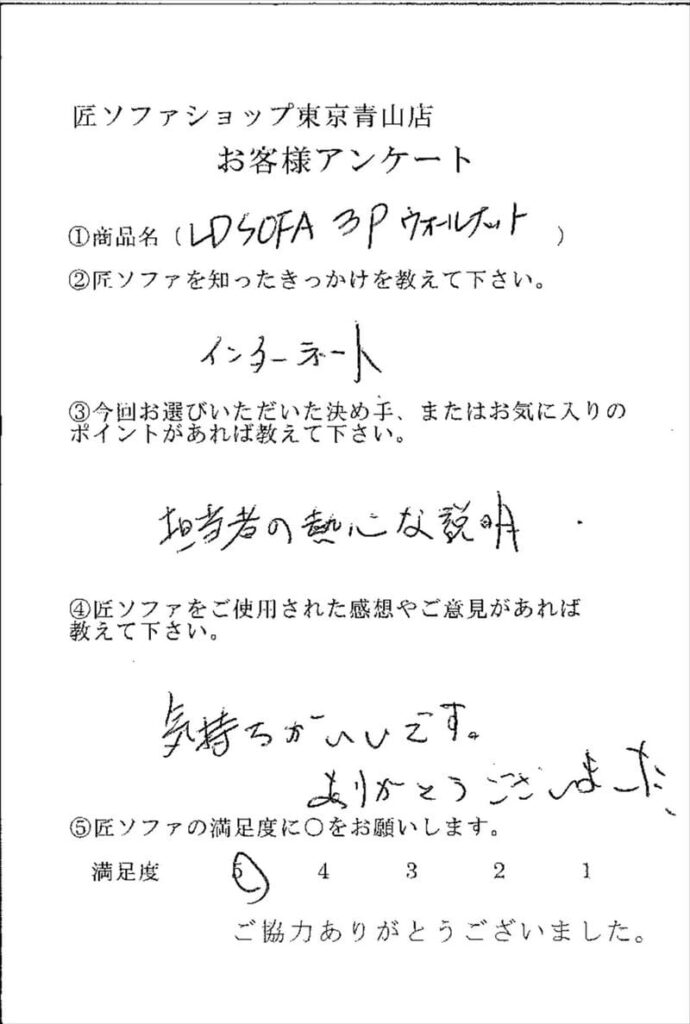 匠ソファショップ東京青山店
お客様アンケート
①商品名（LDSOFA 3P ウォールナット）
②匠ソファを知ったきっかけを教えて下さい。
インターネット
③今回お選びいただいた決め手、またはお気に入りの
ポイントがあれば教えて下さい。
担当者の熱心な説明
④匠ソファをご使用された感想やご意見があれば
教えて下さい。
気持ちがいいです。
ありがとうございました。
⑤匠ソファの満足度に〇をお願いします。
満足度 5 4 3 2 1
ご協力ありがとうございました。